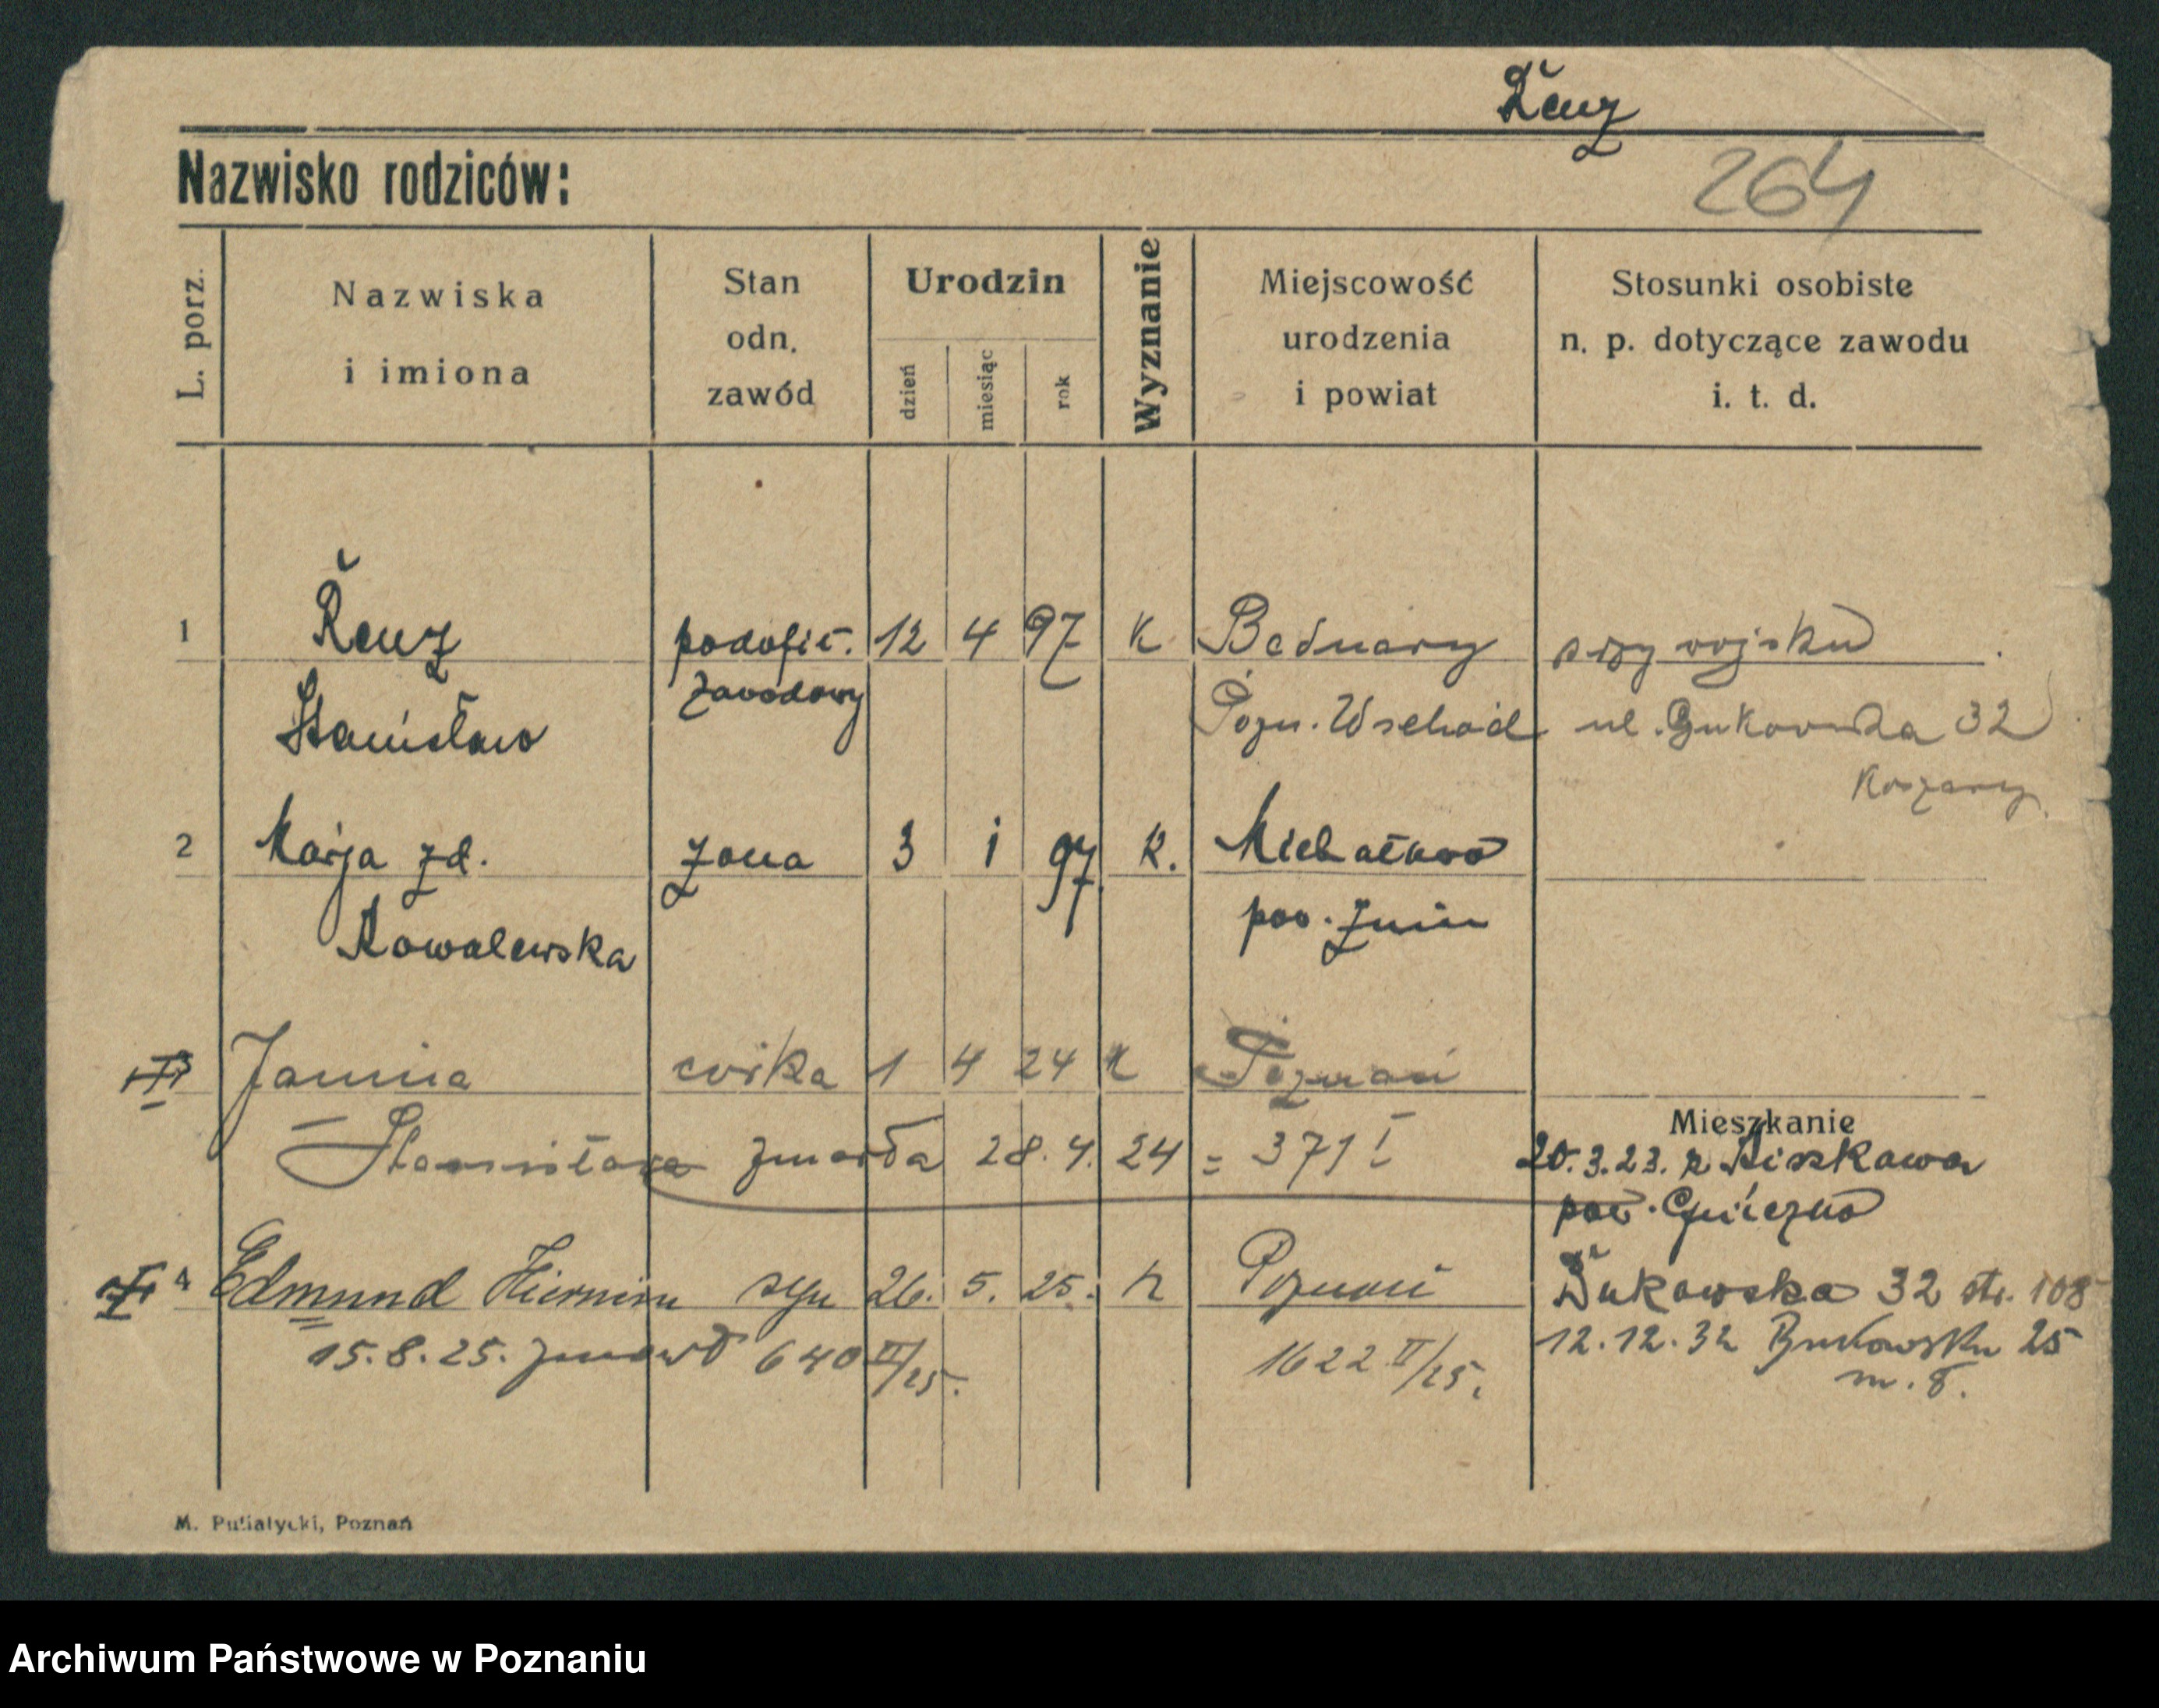 Řenz
Nazwisko rodziców:
264
L. porz.
Nazwiska
i imiona
Stan
odn.
zawód
Urodzin
dzień
miesiąc
rok
Wyznanie
Miejscowość
urodzenia
i powiat
Stosunki osobiste
n. p. dotyczące zawodu
i. t. d.
1 Řenz podofic. 12 4 97 K Bednary przy wojsku
Stanisław zawodowy Pozn. Wschód ul. Bukowska 32
Koszary
2 Marja zd. żona 3 i 97 K. Michałkowo
Kowalewska pow. Żnin
3 Janina córka 1 4 24 K Poznań
Mieszkanie
Stanisława zmarła 28. 4. 24 = 371 I 20.3.23. z Kiszkowa
pow. Gniezno
4 Edmund syn 26. 5. 25. K Poznań Bukowska 32 str. 108
15.8.25. zmarł 640 II/25. 1622 II/25. 12.12.32 Bukowska 25
m. 8.
M. Putiatycki, Poznań
Archiwum Państwowe w Poznaniu